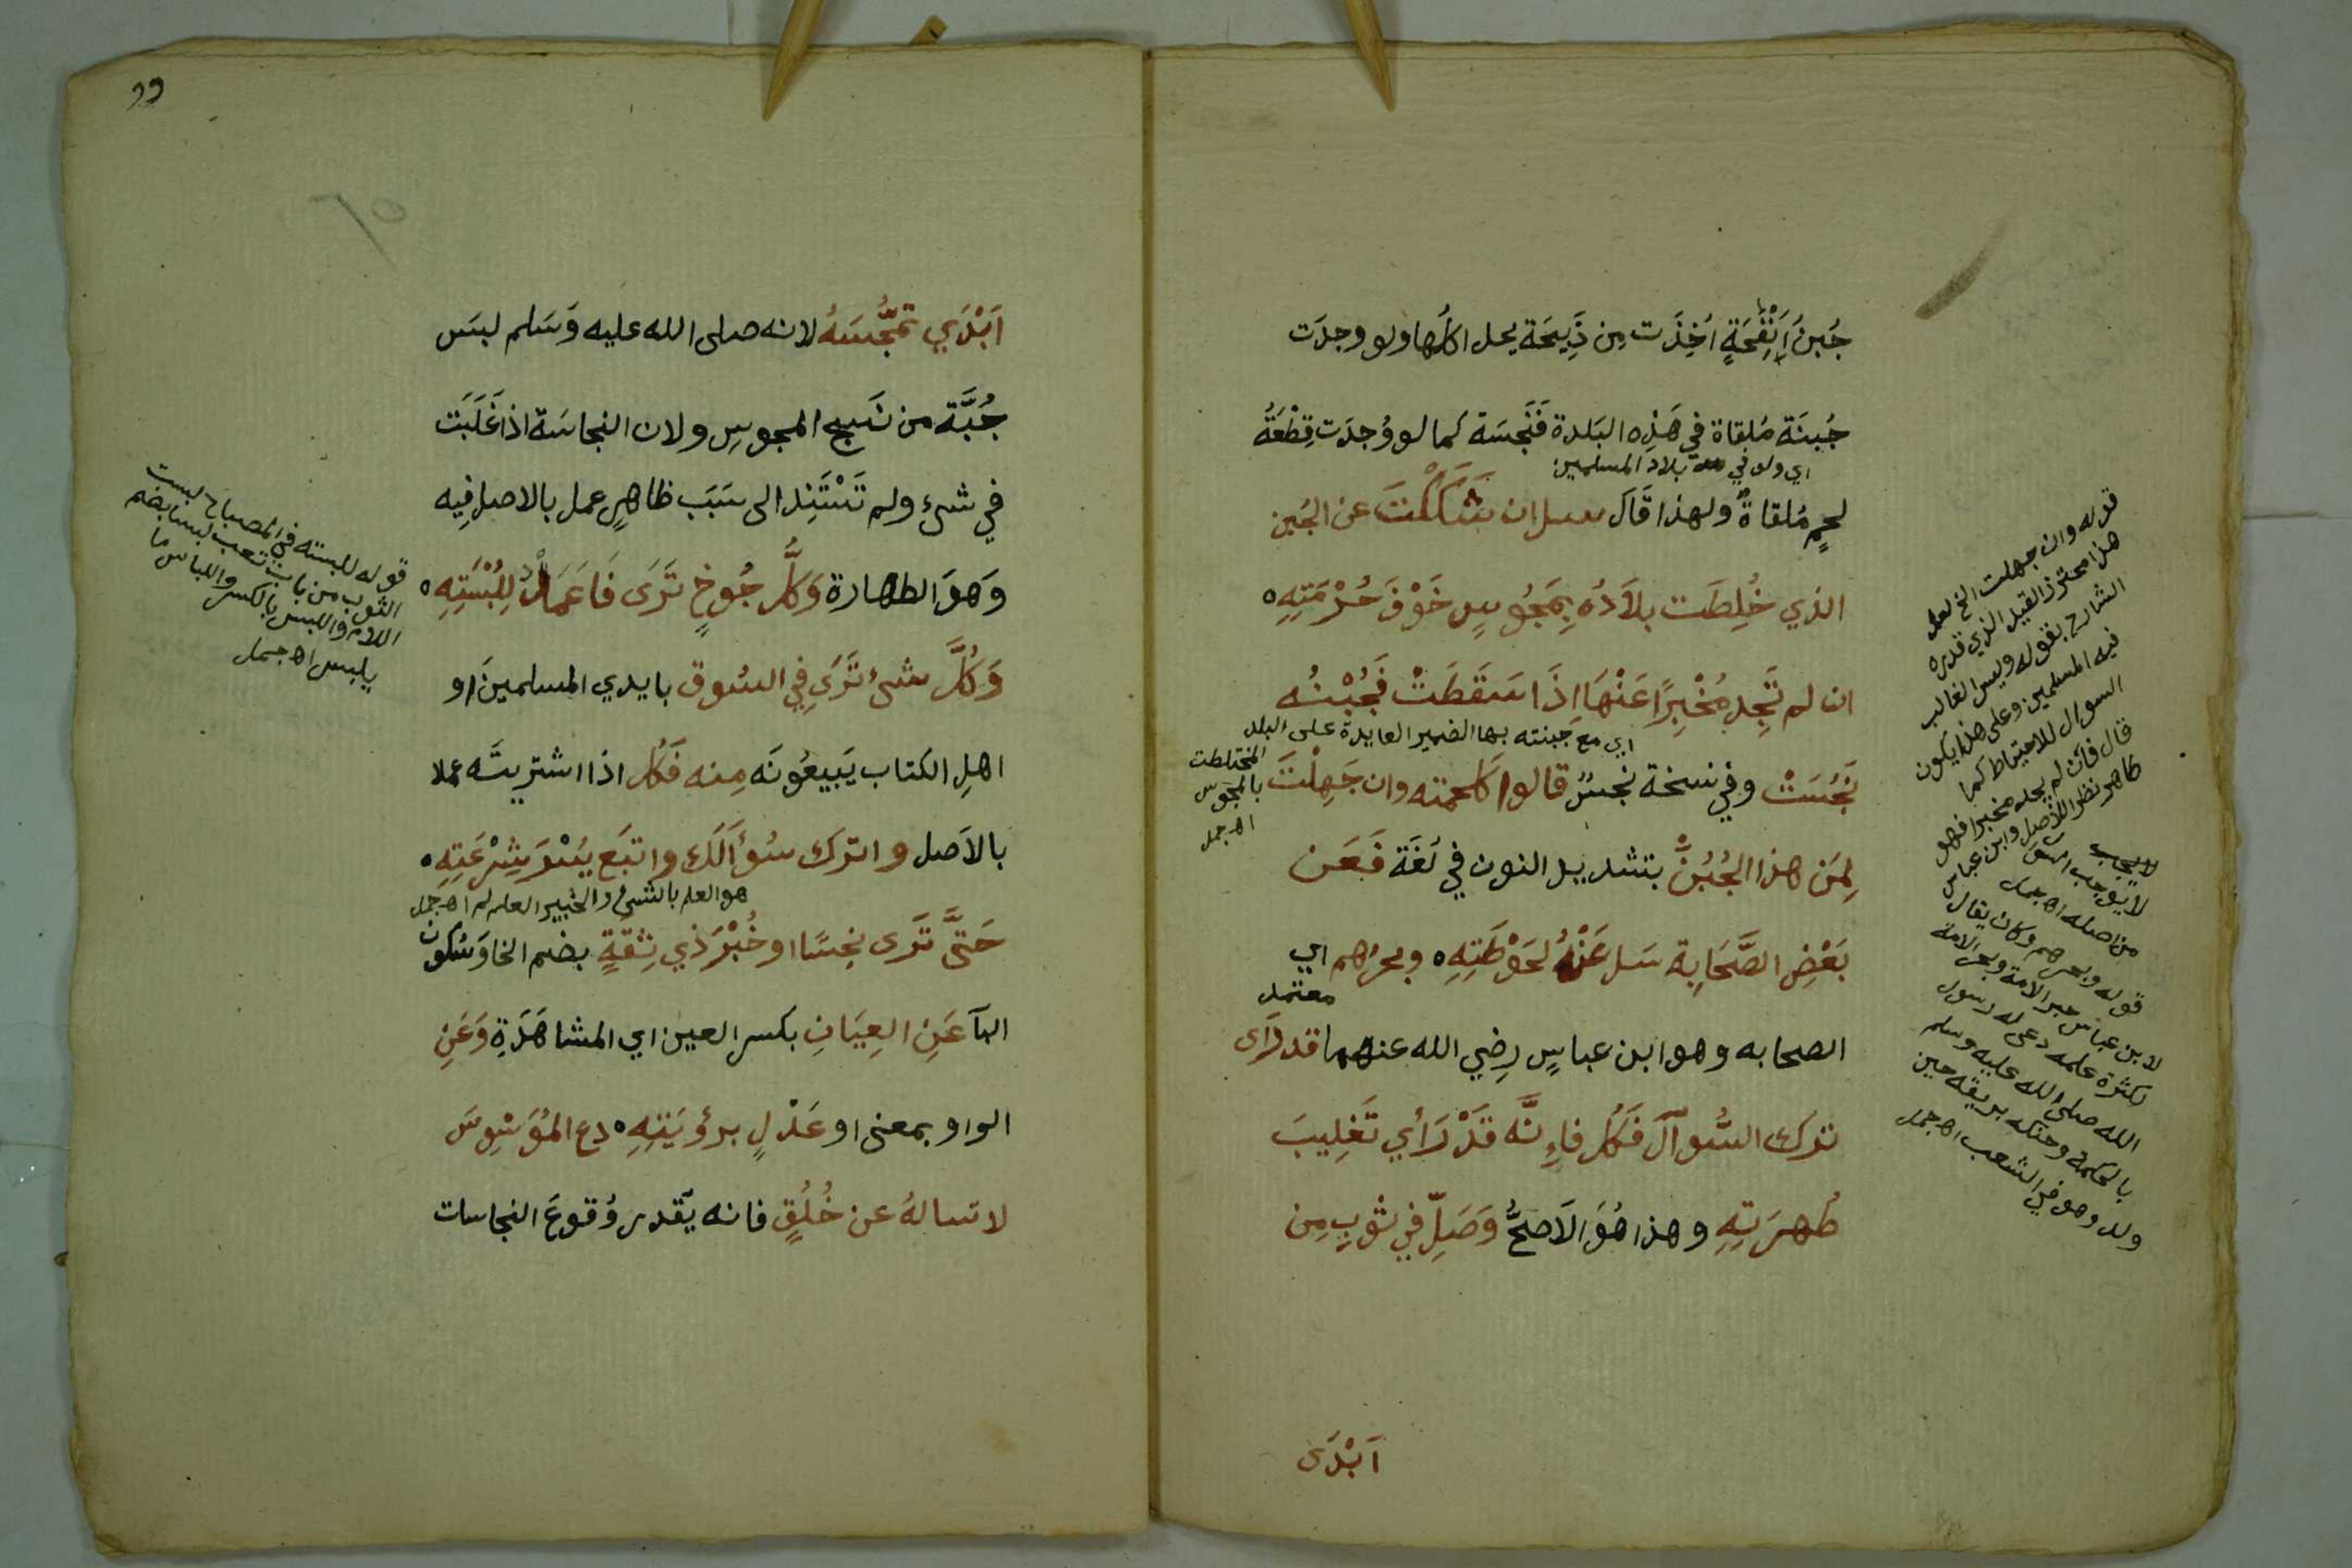 جُبنُ اِنْفَحَةٍ اُخِذَت مِن ذَبِيحَة يحل اكلُها ولو وجدَت
جُبنَة مُلقاة في هَذِه البَلدة فَنَجسَة كما لو وُجدَت قِطْعَةُ
اي ولو في بلاد المسلمين
لحمٍ مُلقاةٌ ولهذا قَال سل ان شَكَكْتَ عن الجُبن
الذي خُلِطَت بلاَدُه بِمَجُوسٍ خَوْفَ حُرْمَتِهِ ه
ان لم تَجِد مُخْبِرًا عَنْهَا اِذَا سَقَطَتْ فَجُبْنُه
اي مع جبنته بها الضمير العايدة على البلد
المختلطت
بالمجوس
اهـ جمل
نَجُسَتْ وفي نسخة نجسٌ قالوا كلحمته وان جَهِلْتَ
لِمَن هذا الجُبُنُّ بتشديد النون في لُغَة فَعَن
بَعْضِ الصَّحَابِة سَل عَنْهُ لحَوْطَتِهِ ه وبحرُهم اي
معتمد
الصحابه وهو ابن عباسٍ رضِي الله عنهما قد رَاى
ترك السُّوآلَ فَكُل فاِنَّه قَدْ رَأي تَغلِيبَ
طُهرَتِهِ وهذا هُوَ الاَصَحُّ وَصَلِّ في ثوبٍ مِن
اَبْدَى
قوله وان جهلت الخ لعل
هذا محترز القيد الذي قدره
الشارح بقوله وليس الغالب
فيه المسلمين وعلى هذا يكون
السوال للاحتياط كما
قال فان لم يجد مخبرا فهل
طاهر نظرا للاصل وابن عباس
لا يجب
لا يوجب
من اصله اهـ جمل
قوله وبحرهم وكان يقال
لابن عباس حبر الامة وبحر الامة
لكثرة علمه دعى له رسول
الله صلى الله عليه وسلم
بالحكمة وحنكه بريقه حين
ولد وهو في الشعب اهـ جمل
٩٩
اَبْدَي تمجُّسَهُ لانه صلى الله عليه وَسَلم لبسَ
جُبَّة من نَسج المجوسِ ولان النجاسَة اذا غَلَبَت
في شئ ولم تَسْتَنِد الى سَبَب ظاهِرٍ عمل بالاصل فِيه
وَهوَ الطهارة وَكلُّ جُوخٍ تَرَى فَاعْمَدْ لِلُبْسَتِهِ ه
وَكُلَّ شئ تَرَى في السُوق بايدي المسلمينَ او
اهلِ الكتاب يَبيعُونَه مِنه فَكُل اذا اشتريتَه عملا
بالاَصل واترك سُؤَالَكَ واتبَع يُسْرَ شِرْعَتِهِ ه
هو العلم بالشئ والخبير العلم له اهـ جمل
حَتَّى تَرى نِجسًا او خُبْرَ ذي ثِقَةٍ بضم الخا وَسُكون
البآ عَنِ العِيَانِ بكسر العين اي المشاهَدَةِ وَعَنِ
الواو بمعنى او عَدْلٍ برؤيَتِهِ ه دع المُوَسْوِسَ
لا تسالهُ عن خُلُقٍ فانه يَقدر وُقوعَ النجاسات
قوله للبسته في المصباح لبست
الثوب من باب تعب لبسا بضم
اللام واللبس بالكسر واللباس ما
يلبس اهـ جمل